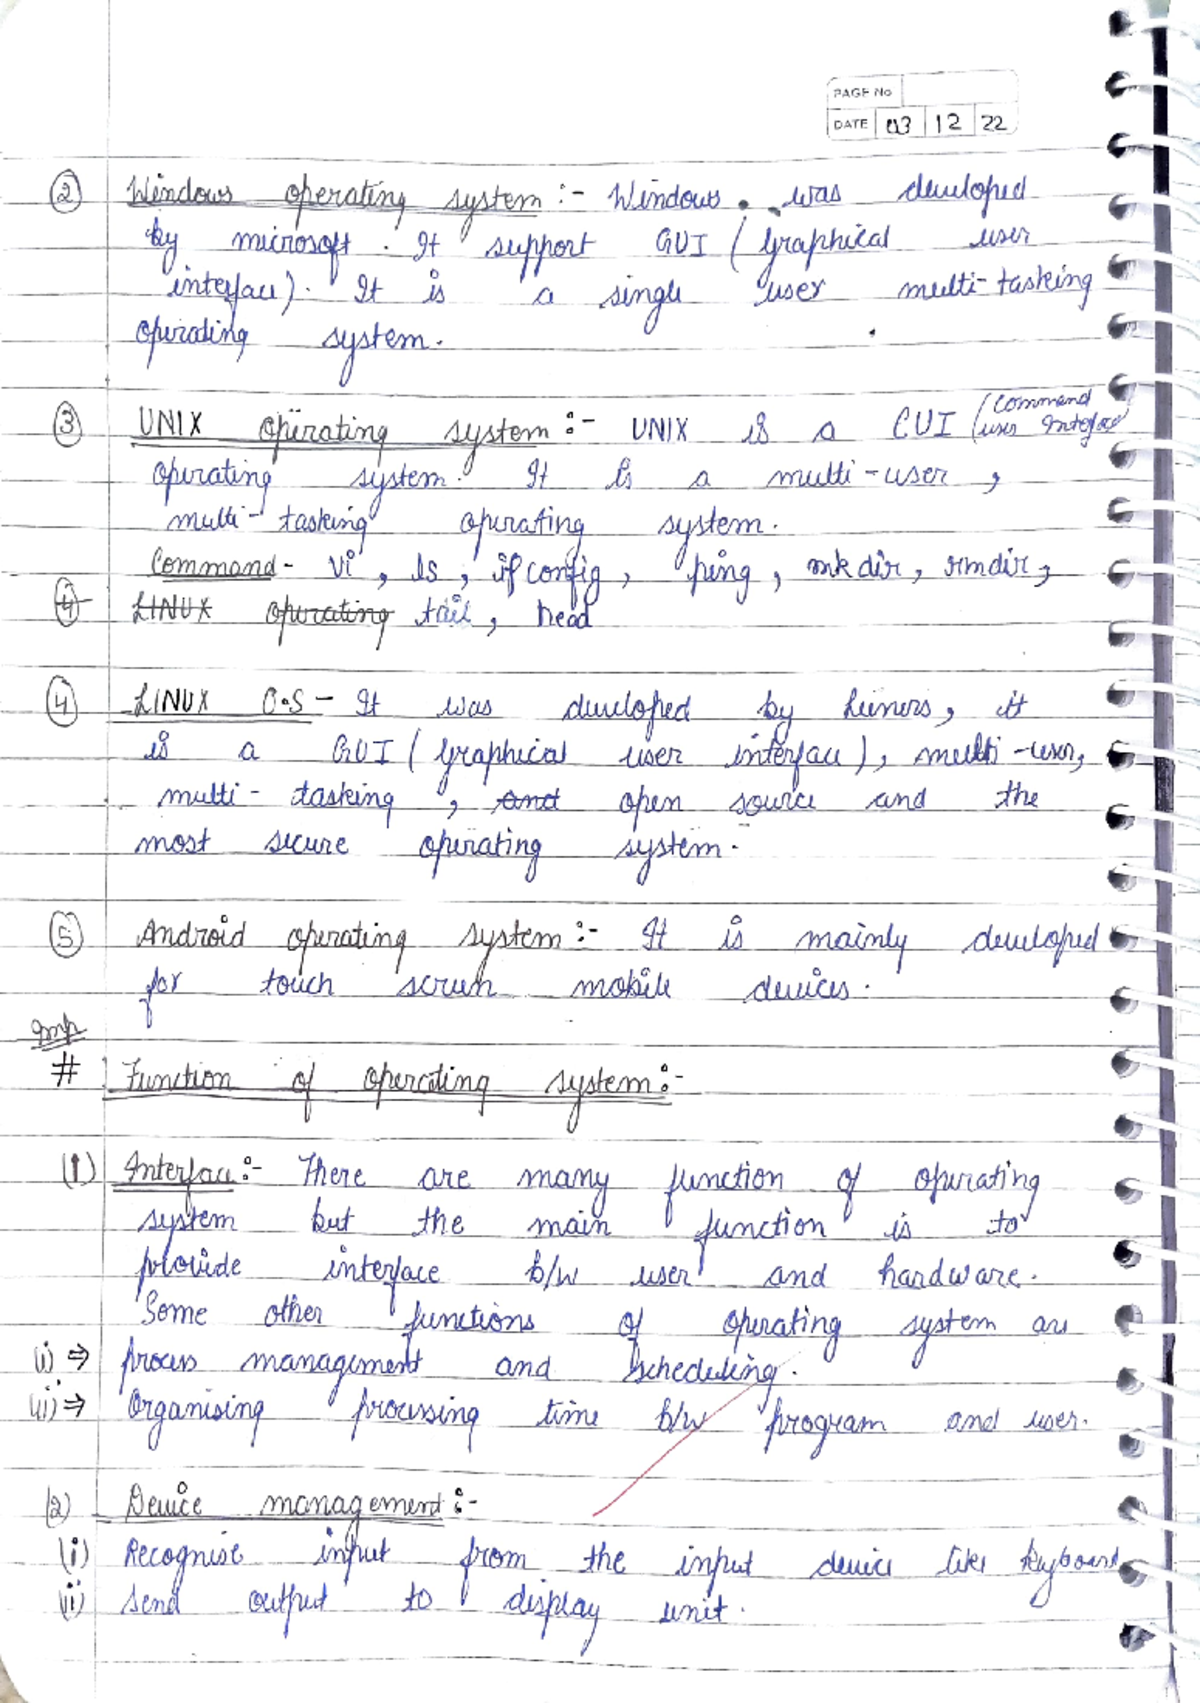 PAGE No
DATE 03 12 22
② Windows operating system :- Windows was developed
by microsoft. It support GUI (graphical user
interface). It is a single user multi-tasking
operating system.
③ UNIX operating system :- UNIX is a CUI (command
user interface
operating system. It is a multi-user,
multi-tasking operating system.
Command - vi, ls, ifconfig, ping, mkdir, rmdir,
④ LINUX operating tail, head
④ LINUX O.S - It was developed by it
is a GUI (graphical user interface), multi-user,
multi-tasking, and open source and the
most secure operating system.
⑤ Android operating system :- It is mainly developed
for touch screen mobile devices.
Imp
# Function of operating system :-
(1) Interface :- There are many function of operating
system but the main function is to
provide interface b/w user and hardware.
Some other functions of operating system are
(i) ⇒ process management and scheduling.
(ii) ⇒ Organising processing time b/w program and user.
(2) Device management :-
(i) Recognise input from the input device like keyboard
(ii) send output to display unit.